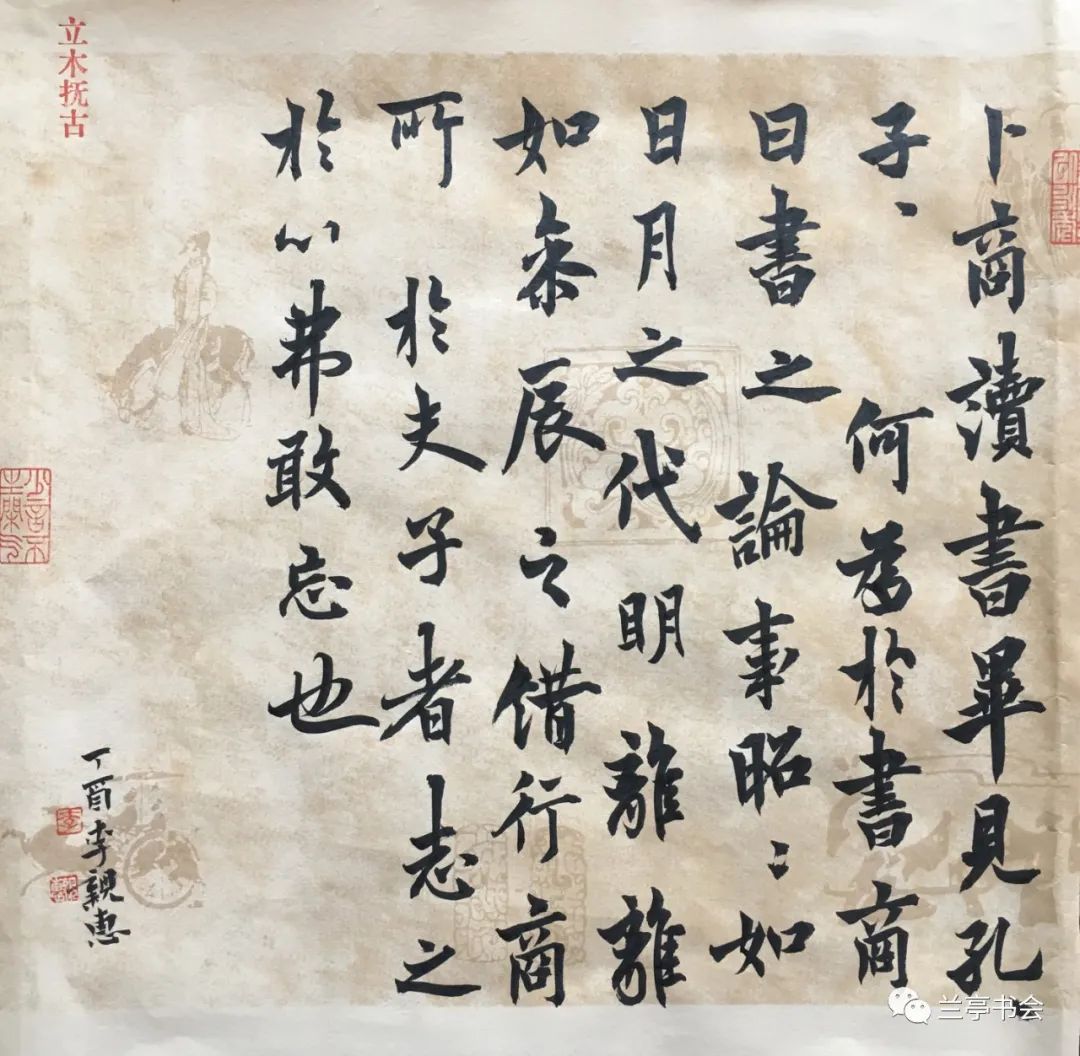 卜商讀書畢見孔
子、何為於書商
曰書之論事昭〻如
日月之代明離離
如參辰之错行商
所於夫子者志之
於心弗敢忘也
丁酉李親惠
立木抚古
李
兰亭书会